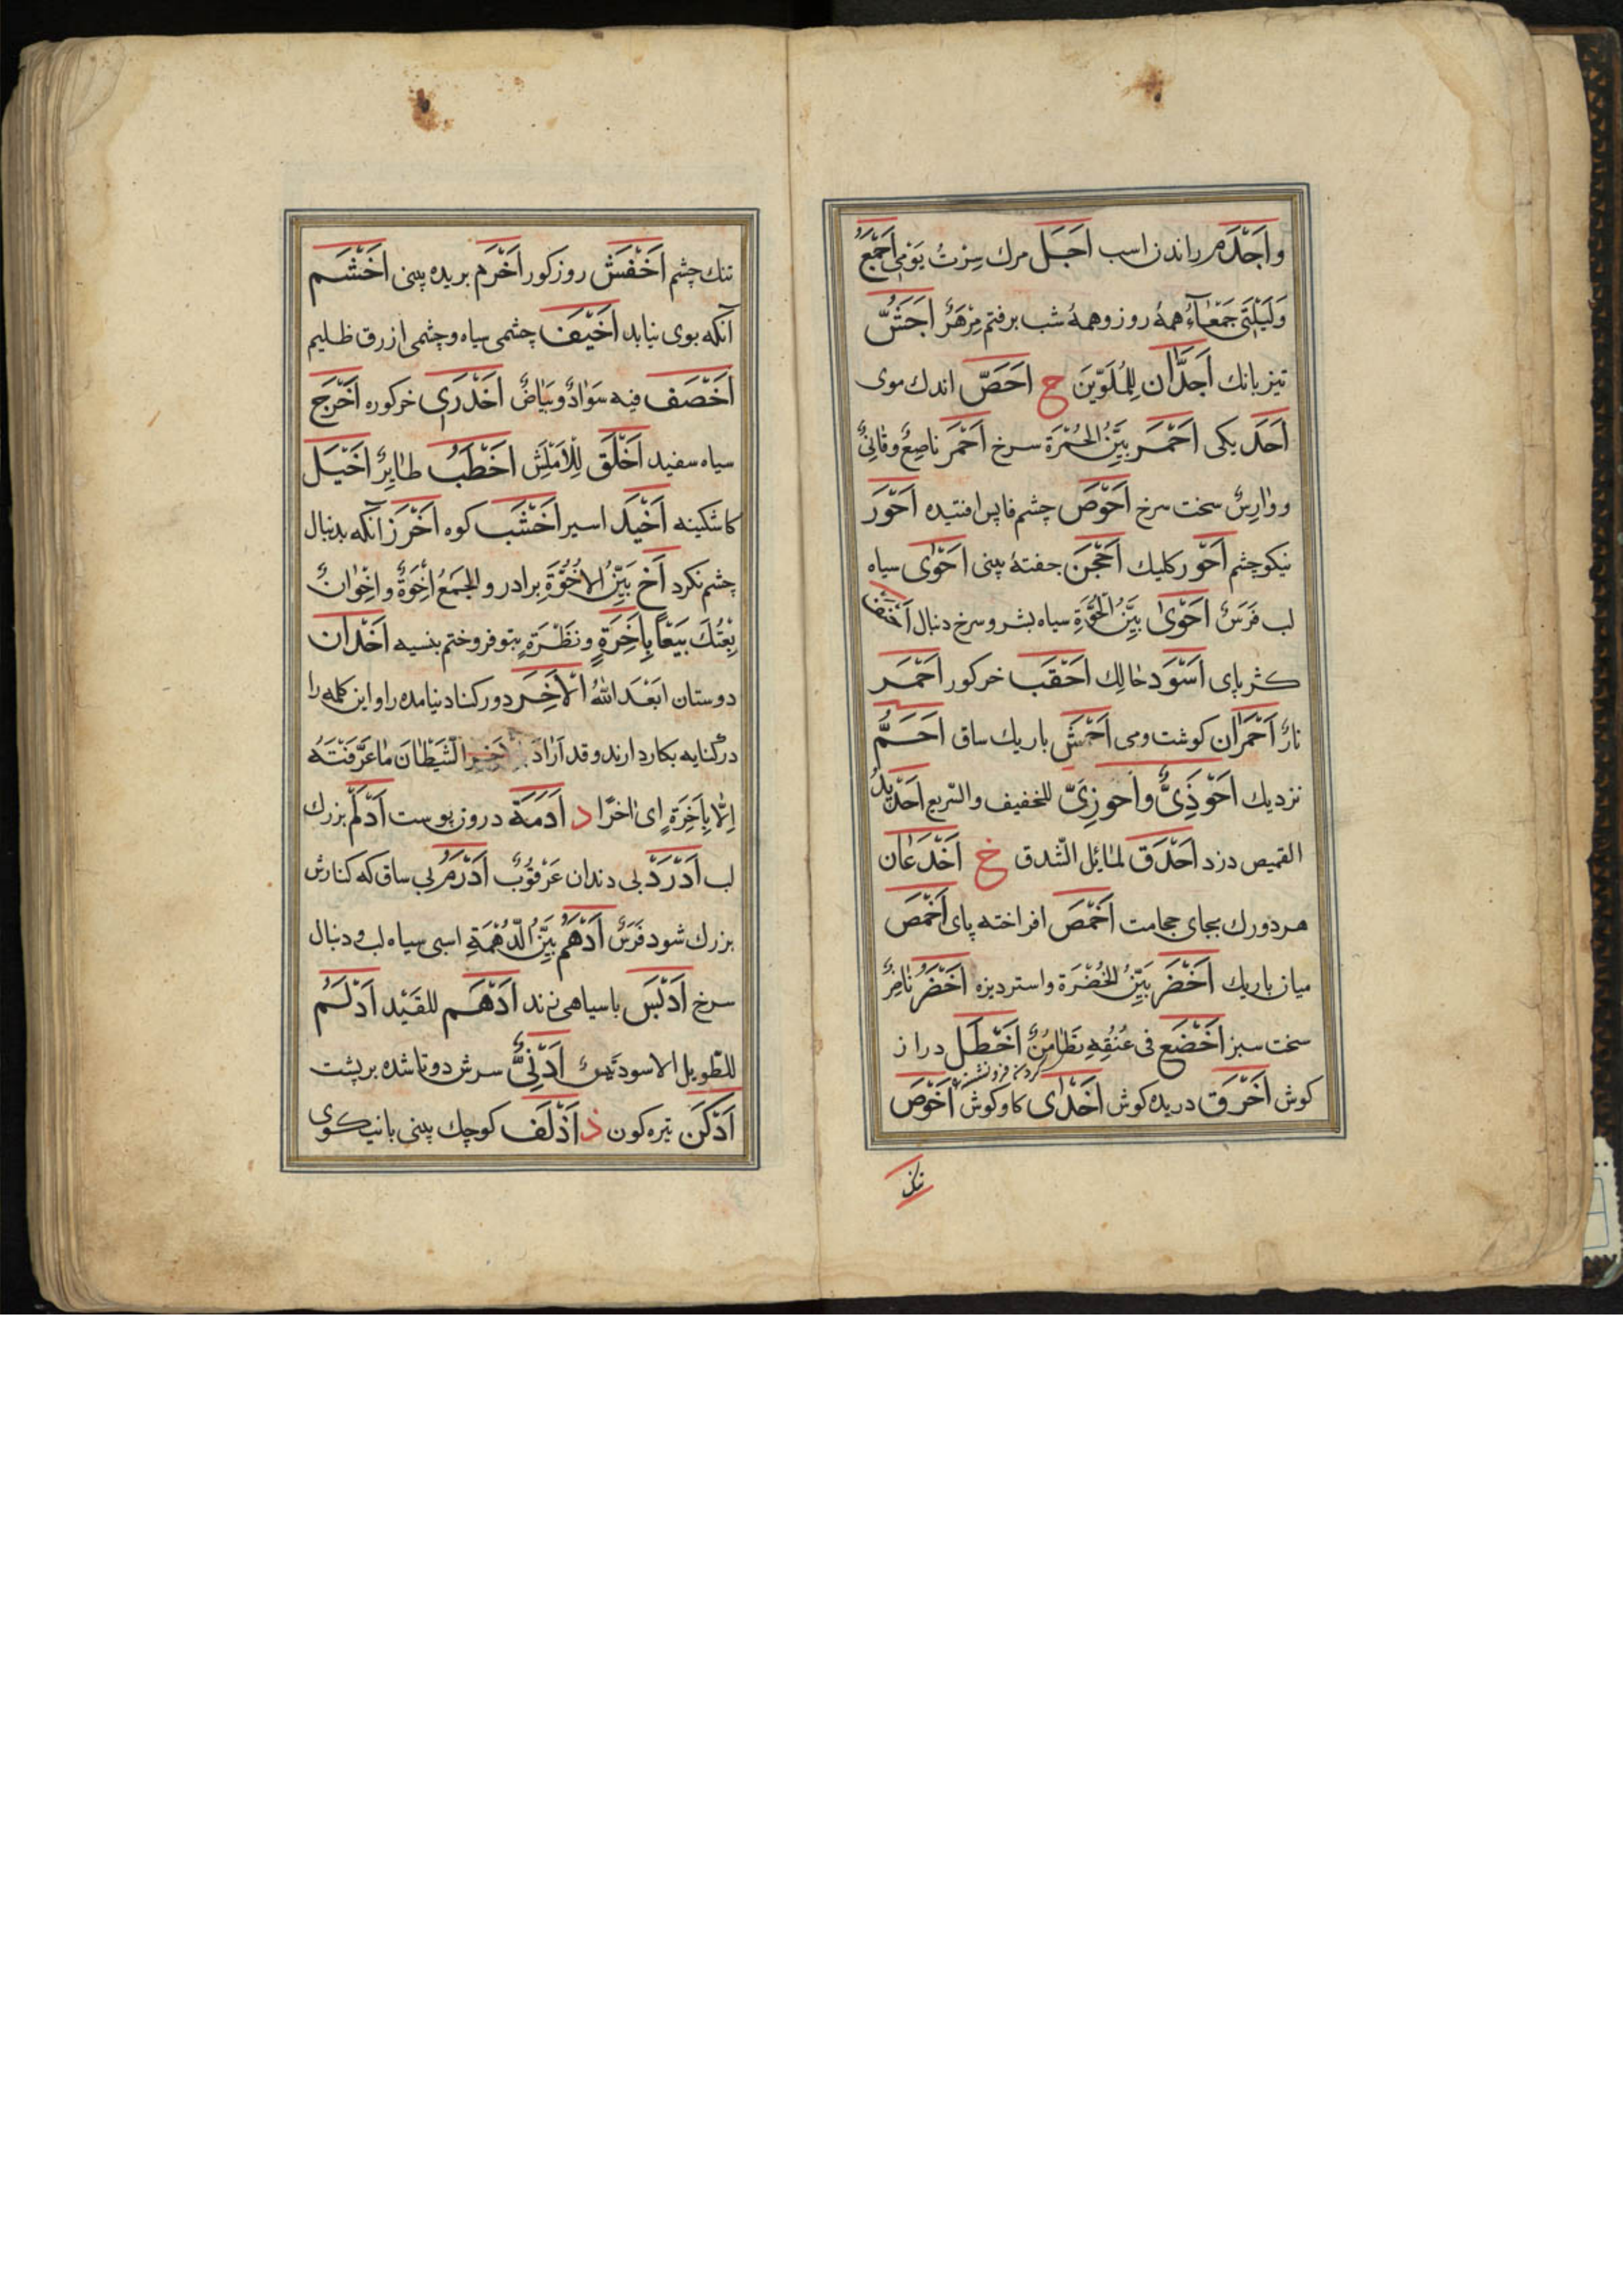 واَجْدَم راندن اسب اَجَل مرك سِرْتُ يَوْمي اَجْمَعَ
وَلَيْلَتي جَمْعَآءَ همهٔ روز وهمهٔ شب برفتم مِزْهَرٌ اَجَشُّ
تيز بانك اَجَدَّان لِلمُلَوَيْنِ ح اَحَصّ اندك موى
اَحَد يكى اَحْمَر بَيِّنُ الحُمْرَة سرخ اَحْمَر ناصِعٌ وقانِئٌ
ووٰارِسٌ سخت سرخ اَحْوَص چشم فاپس افتيده اَحْوَر
نيكو چشم اَحْوَر كليك اَحْجَن جفتهٔ بينى اَحْوٰى سياه
لب فَرَسٌ اَحْوٰى بَيِّنُ الحُوَّةِ سياه بش وسرخ دنبال اَحْنَف
كژ پاى اَسْوَد حٰالِك اَحْقَب خر كور اَحْمَر
نارٌ اَحْمَرٰان كوشت ومى اَحْمَش باريك ساق اَحَمُّ
نزديك اَحْوَذِىٌّ واَحْوَزِىّ للخفيف والسّريع اَحَذّ يَدُ
القميص دزد اَحْدَق لمٰائل الشّدق خ اَخْدَعٰان
هر دو رك بجاى حجامت اَخْمَص افراخته پاى اَخْمَص
ميان باريك اَخْضَر بَيِّنُ الخُضْرَة واستر ديزه اَخْضَرُ نٰاضِرٌ
سخت سبز اَخْضَع فى عُنُقِهِ تَطٰامُنٌ اَخْطَل دراز
كردن فرو نشسته
كوش اَخْرَق دريده كوش اَخْذٰى كاو كوش اَخْوَص
تنك
تنك چشم اَخْفَش روز كور اَخْرَم بريده بينى اَخْشَم
آنكه بوى نيابد اَخْيَف چشمى سياه وچشمى ازرق ظليم
اَخْصَف فيه سَوٰادٌ وبَيٰاضٌ اَخْدَرى خر كوره اَخْرَج
سياه سفيد اَخْلَق لِلْاَمْلَسِ اَخْطَبُ طٰايِرٌ اَخْيَل
كاشكينه اَخْيَذ اسير اَخْشَب كوه اَخْزَر آنكه بدنبال
چشم نكرد اَخ بَيِّنُ الاُخُوَّةِ برادر والجَمعُ اِخْوَةٌ واِخْوٰانٌ
بِعْتُكَ بَيْعاً بِاَخِرَةٍ ونَظْرَةٍ بتو فروختم بنسيه اَخْدان
دوستان اَبْعَدَ اللّٰهُ الْاَخِرَ دور كناد نيامده را واين كلمه را
در كنايه بكار دارند وقد اَرٰادَ الشَّيْطٰانَ مٰا عَرَفْتَهُ
اِلّا بِاَخِرَةٍ اى اٰخرًا د اَدَمَة دروز پوست اَدْلَم بزرك
لب اَدْرَد بى دندان عَرْقُوبٌ اَدْرَمُ بى ساق كه كنارش
بزرك شود فَرَسٌ اَدْهَمُ بَيِّنُ الدُّهْمَةِ اسبى سياه لب ودنبال
سرخ اَدْبَس باسياهى زند اَدْهَم للقَيْد اَدْلَم
للطّويل الاسود تَيْسٌ اَدْنىٌّ سرش دوتا شده بر پشت
اَدْكَن تيره كون ذ اَذْلَف كوچك بينى بانيكوى